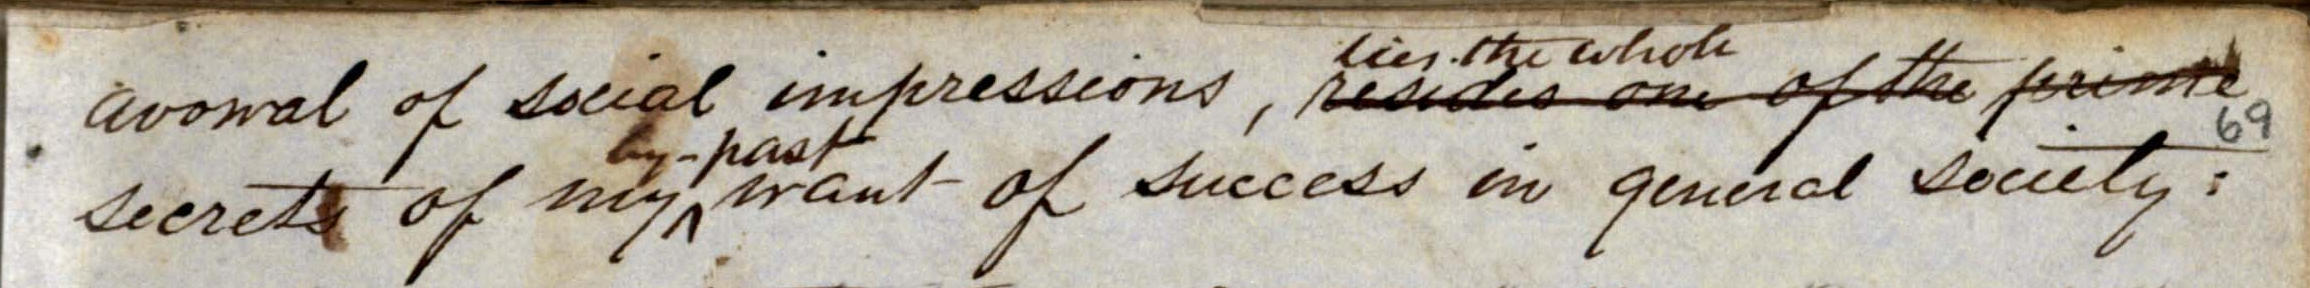 lies the whole
avowal of social impressions, resides one of the prime
69
by-past
secrets of my want of success in general society: